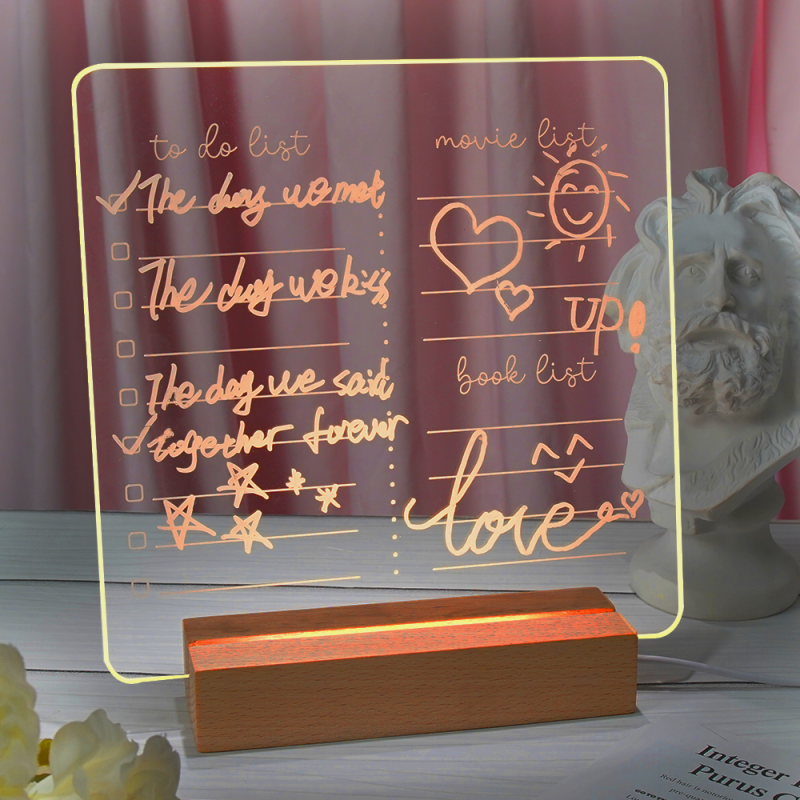 to do list
The day we met
The day we kiss
The day we said
together forever
movie list
up!
book list
love
Integer
Purus C